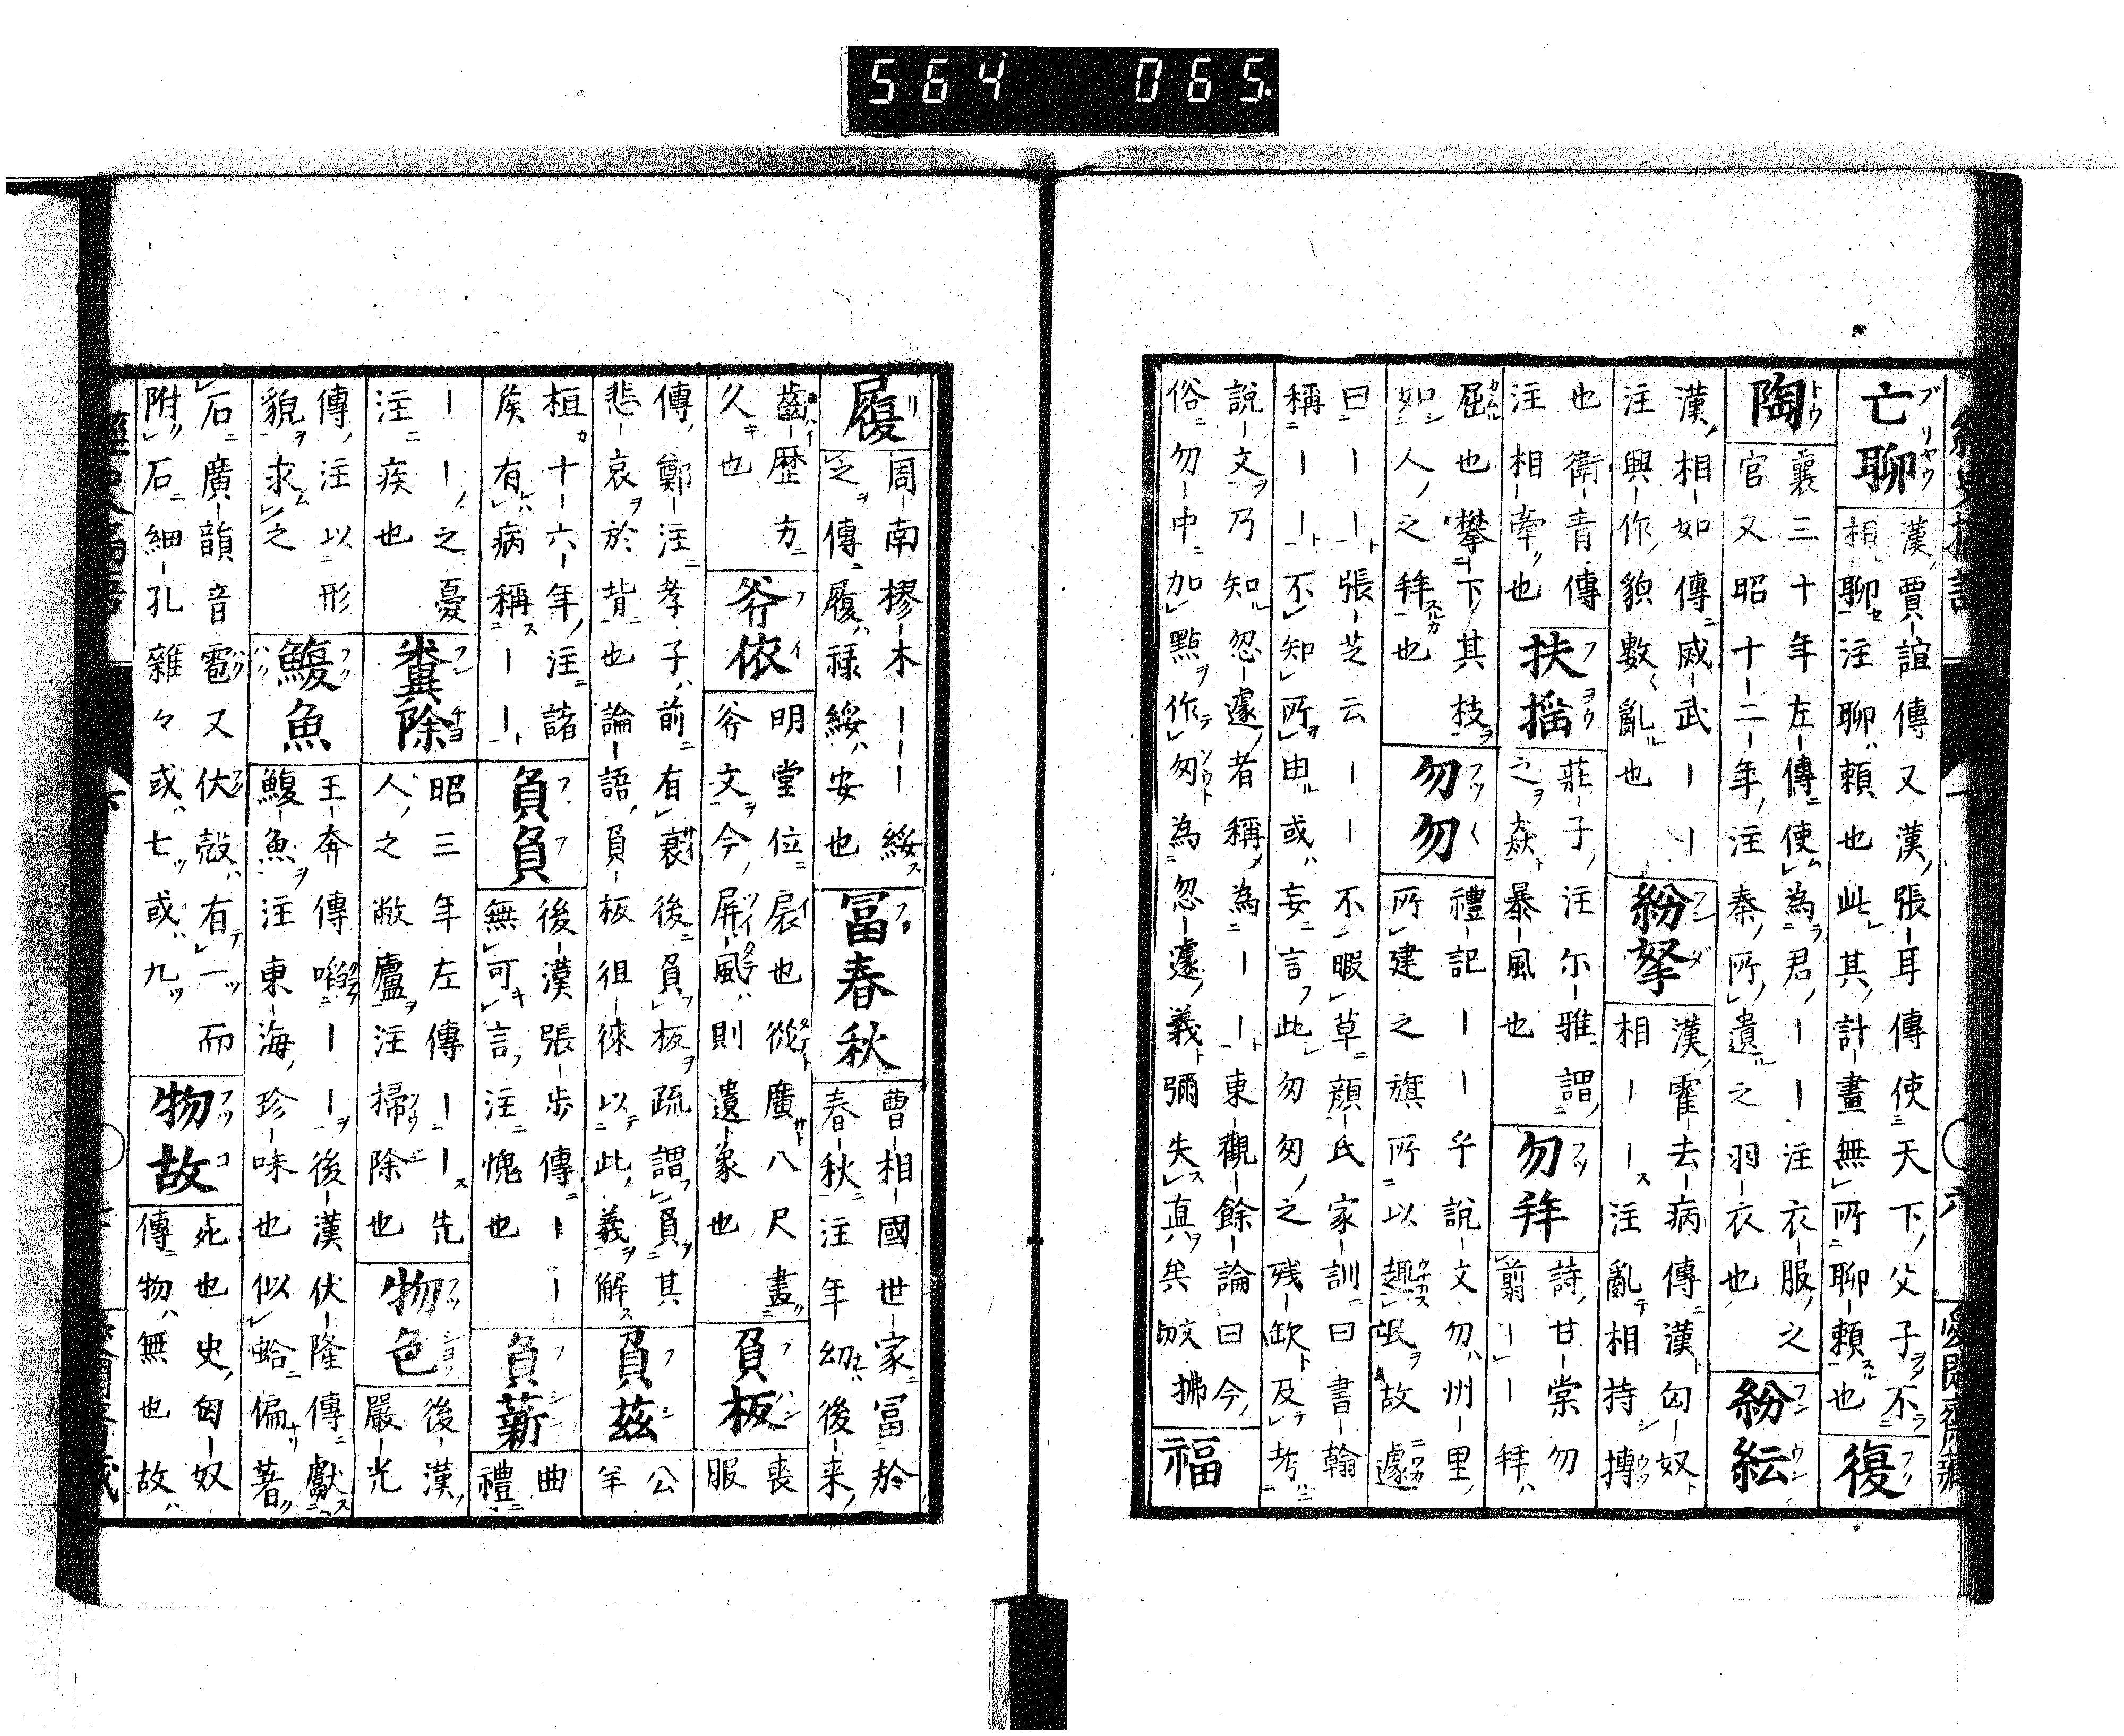 564 065
亡聊
漢賈誼傳又漢張耳傳使天下父子不
相聊注聊頼也此其計畫無所聊頼也
復
陶
襄三十年左傳使為君ーー注衣服之
官又昭十二年注秦所遺之羽衣也
紛紜
漢相如傳威武ーー
注興作貌數亂也
紛拏
漢霍去病傳漢匈奴
相ーー注亂相持搏
也衛青傳
注相牽也
扶揺
莊子注尓雅謂
之猋暴風也
勿拜
詩甘棠勿
翦ーー拜
屈也攀下其枝
如人之拜也
勿勿
禮記ーー乎說文勿州里
所建之旗所以趣民故遽
曰ーー張芝云ーー不暇草顔氏家訓曰書翰
稱ーー不知所由或妄言此匆匆之残缺及考
說文乃知忽遽者稱為ーー東觀餘論曰今
俗勿中加點作匆為忽遽義彌失真矣
福
履
周南樛木ーーー綏
之傳履禄綏安也
冨春秋
曹相國世家冨於
春秋注年幼後来
齒歴方
久也
斧依
明堂位扆也從廣八尺畫
斧文今屏風則遺象也
負板
喪
服
傳鄭注孝子前有衰後負板疏謂負其
悲哀於背也論語負板徂徠以此義解
負兹
公
羊
桓十六年注諸
矦有病稱ーー
負負
後漢張歩傳ーー
無可言注愧也
負薪
曲
禮
ーー之憂
注疾也
糞除
昭三年左傳ーー先
人之敝廬注掃除也
物色
後漢
嚴光
傳注以形
貌求之
鰒魚
王奔傳啗ーー後漢伏隆傳獻
鰒魚注東海珍味也似蛤偏著
石廣韻音雹又伏殼有一而
附石細孔雜々或七或九
物故
死也史匈奴
傳物無也故